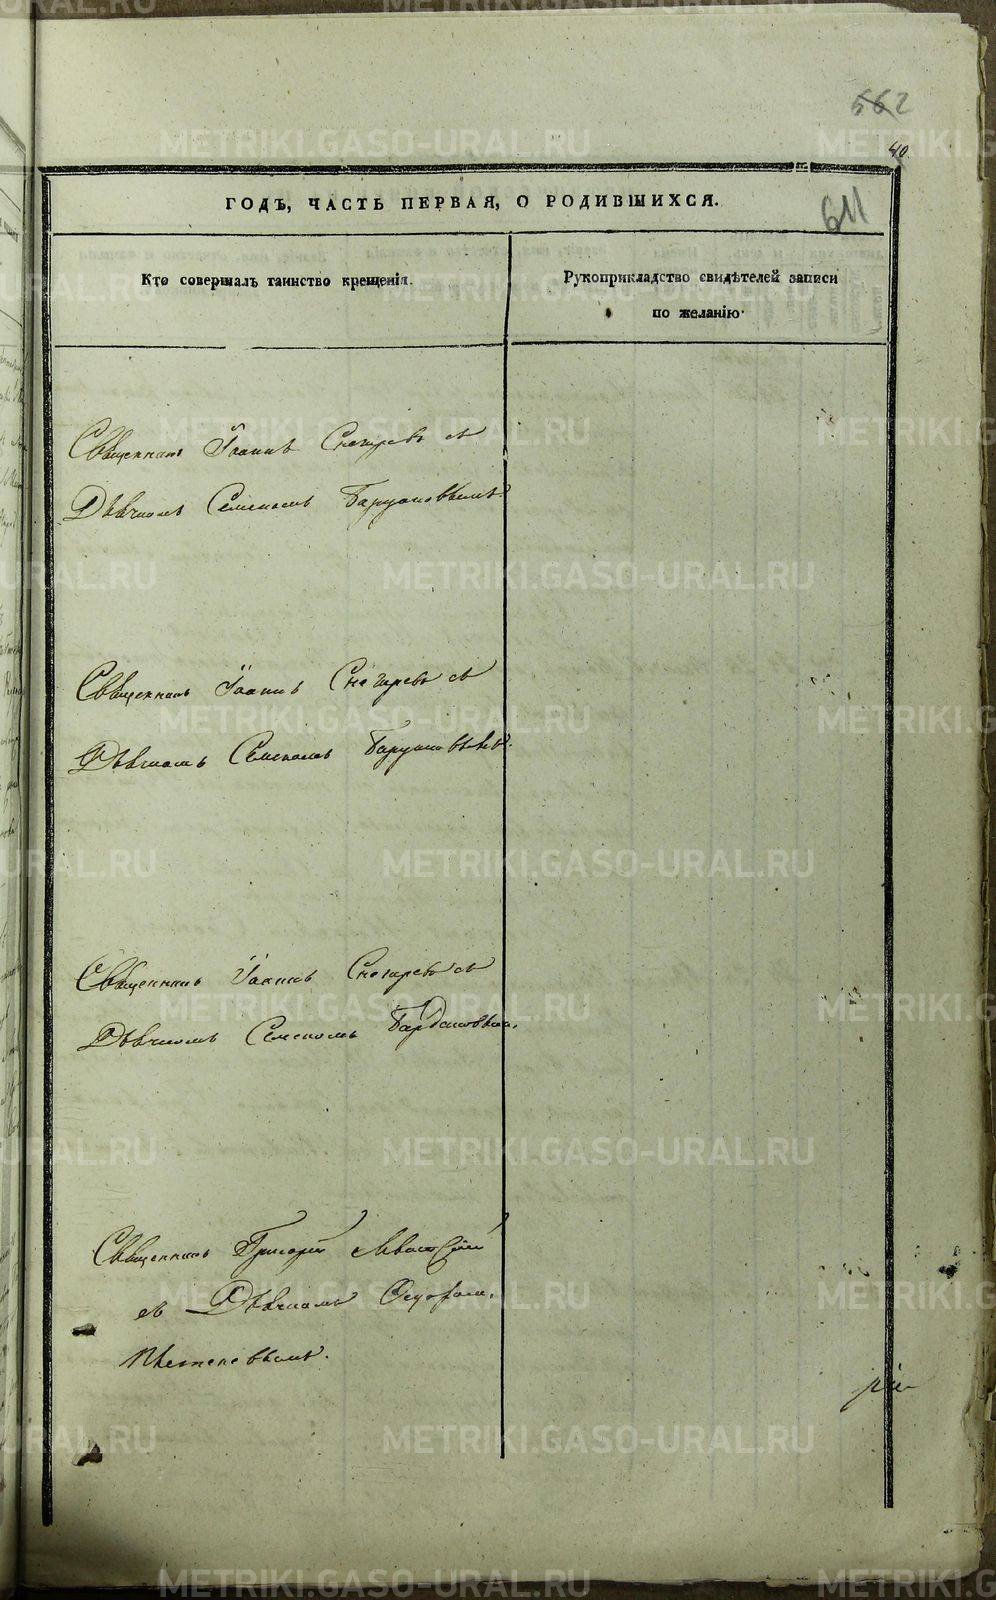 562
40
611
ГОДЪ, ЧАСТЬ ПЕРВАЯ, О РОДИВШИХСЯ.
Кто совершалъ таинство крещенія.
Рукоприкладство свидѣтелей записи
по желанію.
Священникъ Іоаннъ Снегиревъ съ
Дьячкомъ Семеномъ
Священникъ Іоаннъ Снегиревъ съ
Дьячкомъ Семеномъ
Священникъ Іоаннъ Снегиревъ съ
Дьячкомъ Семеномъ
Священникъ Григорій
съ Дьячкомъ
METRIKI.GASO-URAL.RU